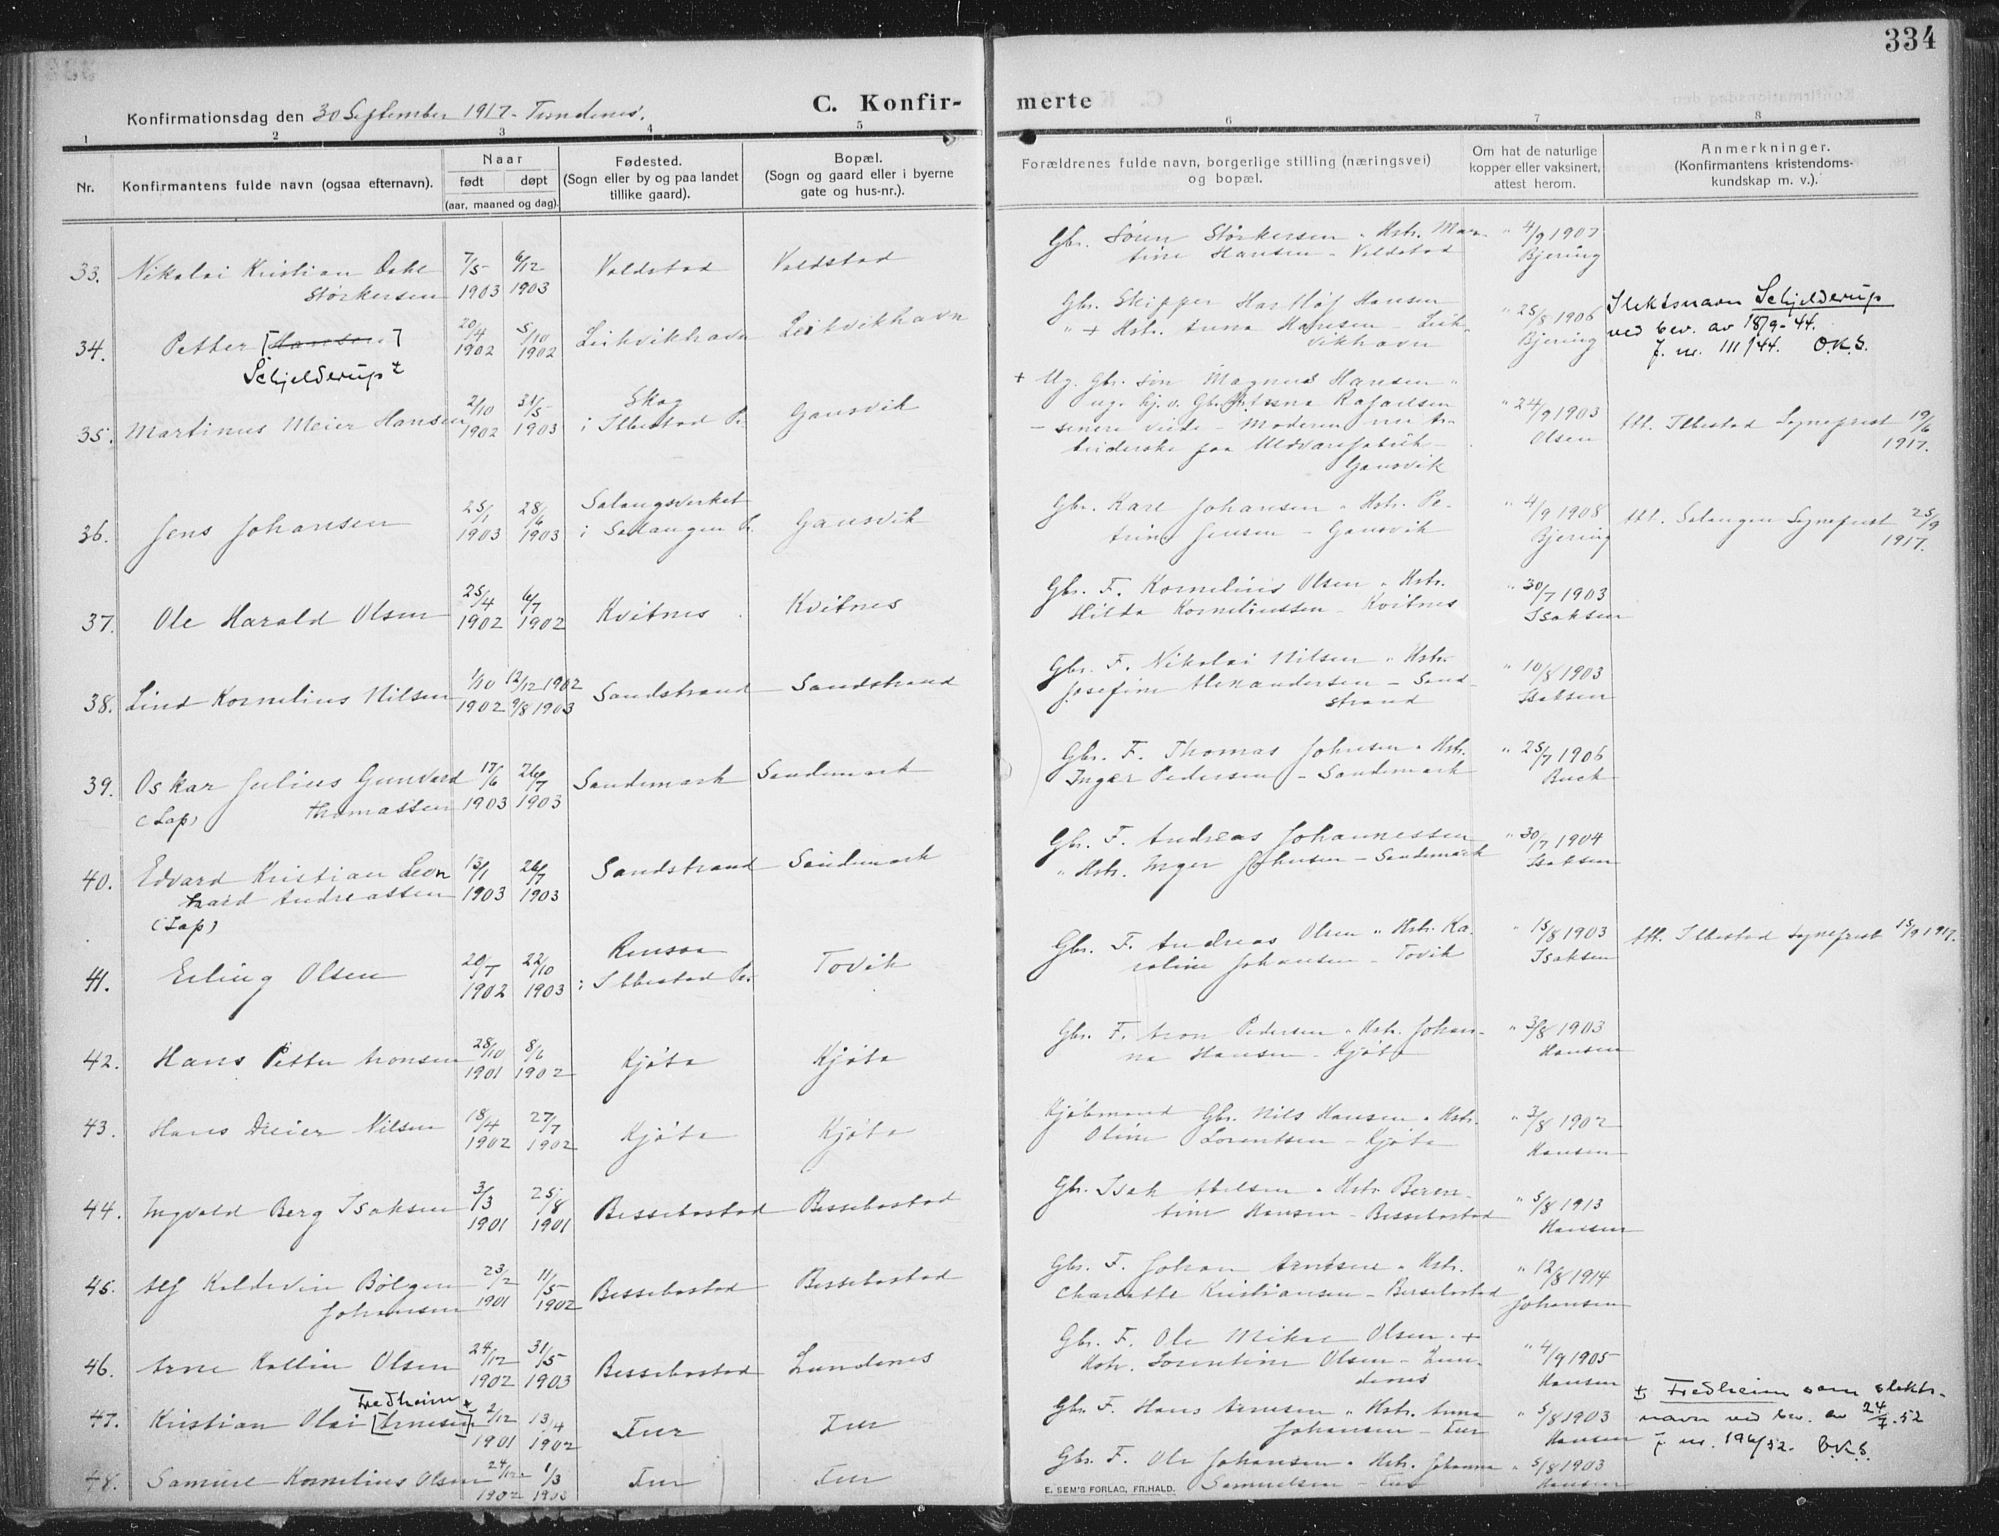 334
Konfirmationsdag den 30 September 1917
C. Konfir-
merte
1 2 3 4 5 6 7 8
Nr.
Konfirmantens fulde navn (ogsaa efternavn).
Naar
født døpt
(aar, maaned og dag).
Fødested.
(Sogn eller by og paa landet
tillike gaard).
Bopæl.
(Sogn og gaard eller i byerne
gate og hus-nr.).
Forældrenes fulde navn, borgerlige stilling (næringsvei)
og bopæl.
Om hat de naturlige
kopper eller vaksinert,
attest herom.
Anmerkninger.
(Konfirmantens kristendoms-
kundskap m. v.).
33. Nikolai Kristian Dahl 7/5 6/12 Voldstad Voldstad
Størkersen 1903 1903
Gbr. Sören Störkersen " Hstr. Mar-
tine Hansen - Voldstad
" 4/9 1907
Bjering
34. Petter [Hansen] 20/4 5/10 Leikvikhavn Leikvikhavn
1902 1902
Schjelderup ±
Gbr. Skipper Hartløf Hansen
" + Hstr. Anna Hansen - Leik-
vikhavn
" 25/8 1906
Bjering
Slektsnavn Schjelderup
ved bev. av 18/9-44.
J. nr. 111/44. O.K.S.
35. Martinus Meier Hansen 2/10 31/5 Skog Gansvik
1902 1903 i Ibbestad P.
+ Ug. Gbr. søn Magnus Hansen "
ug.
- senere viede - Moderen nu ar-
beiderske paa Uldvarefabrik -
Gansvik
" 24/9 1903
Olsen
Att. Ibbestad Sogneprest 19/6
1917.
36. Jens Johansen 25/1 28/6 Salangsverket Gansvik
1903 1903 i Salangen P.
Gbr. Karl Johansen " Hstr. Pe-
trine Jensen - Gansvik
" 4/9 1908
Bjering
Att. Salangen Sogneprest 25/9
1917.
37. Ole Harald Olsen 25/4 6/7 Kvitnes Kvitnes
1902 1902
Gbr. F. Kornelius Olsen " Hstr.
Hilda Korneliussen - Kvitnes
" 30/7 1903
Isaksen
38. Lind Kornelius Nilsen 1/10 12/12 1902 Sandstrand Sandstrand
1902 9/8 1903
Gbr. F. Nikolai Nilsen " Hstr.
Josefine Alexandersen - Sand-
strand
" 10/8 1903
Isaksen
39. Oskar Julius Gunvard 17/6 26/7 Sandemark Sandemark
(Lap) Thomassen 1903 1903
Gbr. F. Thomas Johnsen " Hstr.
Inger Pedersen - Sandemark
" 25/7 1906
Buck
40. Edvard Kristian Leon 13/1 26/7 Sandstrand Sandemark
hard Andreassen 1903 1903
(Lap)
Gbr. F. Andreas Johannessen
" Hstr. Inger Johnsen - Sandemark
" 30/7 1904
Isaksen
41. Erling Olsen 20/7 22/10 Rensaa Tovik
1902 1903 i Ibbestad P.
Gbr. F. Andreas Olsen " Hstr. Ka-
roline Johansen - Tovik
" 15/8 1903
Isaksen
Att. Ibbestad Sogneprest 15/9 1917.
42. Hans Petter Aronsen 28/10 8/6 Kjøta Kjøta
1901 1902
Gbr. F. Aron Pedersen " Hstr. Johan-
na Hansen - Kjøta
" 3/8 1903
Hansen
43. Hans Meier Nilsen 18/4 27/7 Kjøta Kjøta
1902 1902
Kjøbmand Gbr. Nils Hansen " Hstr.
Oline Lorentsen - Kjøta
" 3/8 1902
Hansen
44. Ingvald Berg Isaksen 3/3 25/8 Bessebostad Bessebostad
1901 1901
Gbr. Isak Abelsen " Hstr. Beren-
tine Hansen - Bessebostad
" 5/8 1913
Hansen
45. Alf Koldevin Bölgen 23/2 11/5 Bessebostad Bessebostad
Johansen 1901 1902
Gbr. F. Johan Arntsen " Hstr.
Charlotte Kristiansen - Bessebostad
" 12/8 1914
Johansen
46. Arne Kollin Olsen 24/12 31/5 Bessebostad Lundenes
1902 1903
Gbr. F. Ole Mikal Olsen " +
Hstr. Sorentine Olsen - Lun-
denes
" 4/9 1905
Hansen
Fredheim ±
47. Kristian Olai [Arnesen] 2/12 13/4
1901 1902
Gbr. F. Hans Arnesen " Hstr. Anna
Johansen
" 5/8 1903
Hansen
± Fredheim som slekts-
navn ved bev. av 24/7.52
J. nr. 196/52. O.K.S.
48. Samuel Kornelius Olsen 24/12 1/3
1902 1903
Gbr. F. Ole Johansen " Hstr. Johanna
Samuelsen
" 5/8 1903
Hansen
E. SEM'S FORLAG, FR.HALD.